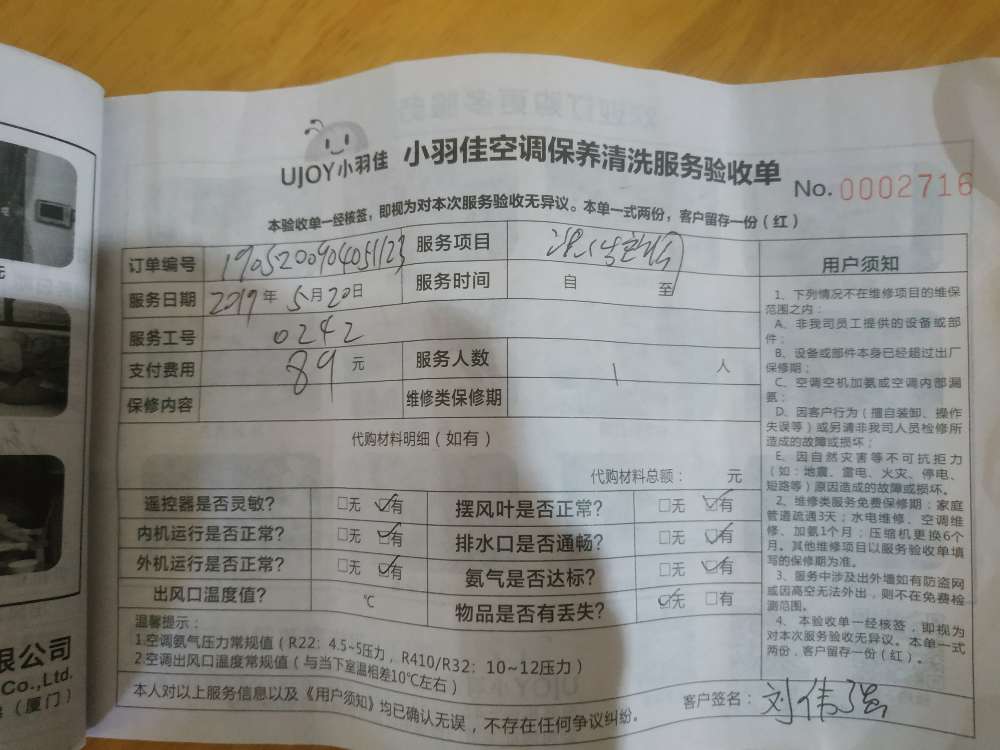 UJOY小羽佳 小羽佳空调保养清洗服务验收单 No. 0002716
本验收单一经核签，即视为对本次服务验收无异议。本单一式两份，客户留存一份（红）
订单编号 服务项目
服务日期 2019年 5月20日 服务时间 自 至
服务工号 0242
支付费用 89 元 服务人数 1 人
保修内容 维修类保修期
代购材料明细（如有）
代购材料总额： 元
遥控器是否灵敏？ □无 ☑有 摆风叶是否正常？ □无 ☑有
内机运行是否正常？ □无 ☑有 排水口是否通畅？ □无 ☑有
外机运行是否正常？ □无 ☑有 氨气是否达标？ □无 ☑有
出风口温度值？ ℃ 物品是否有丢失？ ☑无 □有
温馨提示：
1.空调氨气压力常规值（R22：4.5~5压力，R410/R32：10~12压力）
2.空调出风口温度常规值（与当下室温相差10℃左右）
本人对以上服务信息以及《用户须知》均已确认无误，不存在任何争议纠纷。
客户签名：刘伟强
用户须知
1、下列情况不在维修项目的维保
范围之内：
A、非我司员工提供的设备或部
件；
B、设备或部件本身已经超过出厂
保修期；
C、空调空机加氨或空调内部漏
氨；
D、因客户行为（擅自装卸、操作
失误等）或另请非我司人员检修所
造成的故障或损坏；
E、因自然灾害等不可抗拒力
（如：地震、雷电、火灾、停电、
短路等）原因造成的故障或损坏。
2、维修类服务免费保修期：家庭
管道疏通3天；水电维修、空调维
修、加氨1个月；压缩机更换6个
月。其他维修项目以服务验收单填
写的保修期为准。
3、服务中涉及出外墙如有防盗网
或因高空无法外出，则不在免费检
测范围。
4、本验收单一经核签，即视为
对本次服务验收无异议。本单一式
两份，客户留存一份（红）。
元
限公司
Co.,Ltd.
（厦门）